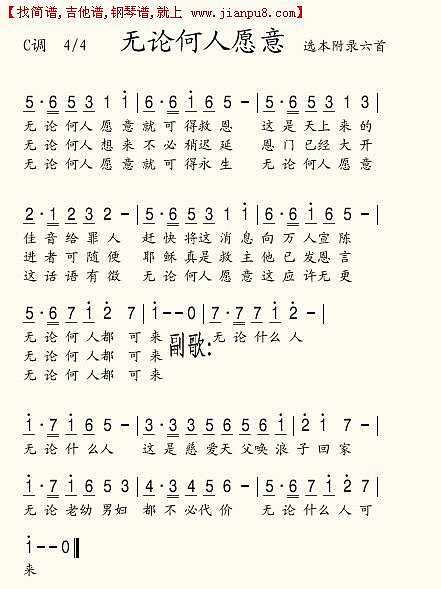 【找简谱,吉他谱,钢琴谱,就上 www.jianpu8.com】
C调 4/4 无论何人愿意 选本附录六首
5·6 5 3 1 i | 6·6 i 6 5 - | 5·6 5 3 1 3 |
无论何人愿意就可得救恩 这是天上来的
无论何人想来不必稍迟延 恩门已经大开
无论何人愿意就可得永生 无论何人愿意
2·1 2 3 2 - | 5·6 5 3 1 i | 6·6 i 6 5 - |
佳音给罪人 赶快将这消息向万人宣陈
进者可随便 耶稣真是救主他已发恩言
这话语有徵 无论何人愿意这应许无更
5·6 7 i 2 7 | i--0 | 7·7 7 i 2 - |
无论何人都可来 副歌: 无论什么人
无论何人都可来
无论何人都可来
i·7 i 6 5 - | 3·3 3 5 6 5 6 i | 2 i 7 - |
无论什么人 这是慈爱天父唤浪子回家
i·7 i 6 5 3 | 4·3 4 5 6 - | 5·6 7 i 2 7 |
无论老幼男妇 都不必代价 无论什么人可
i--0
来